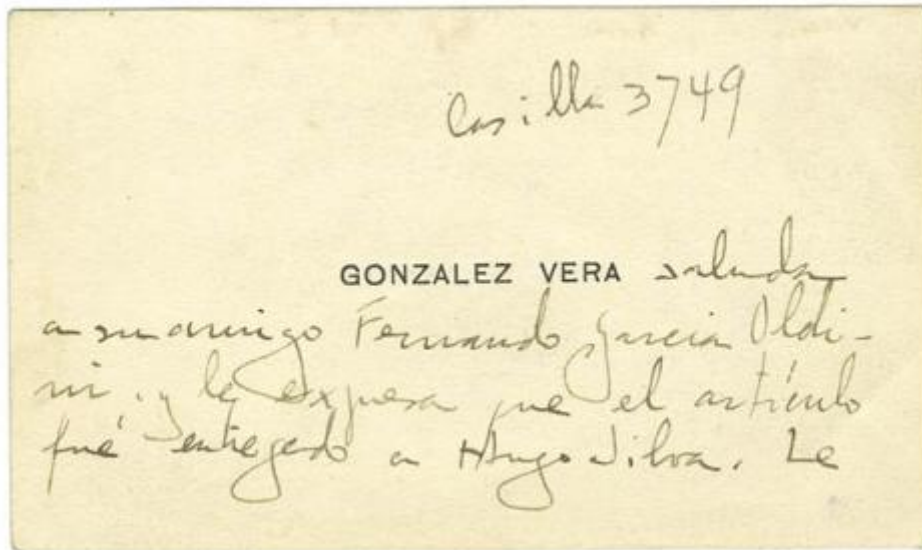 Casilla 3749
GONZALEZ VERA saluda
a su amigo Fernando García Oldi-
ni, y le expresa que el artículo
fué entregado a Hugo Silva. Le